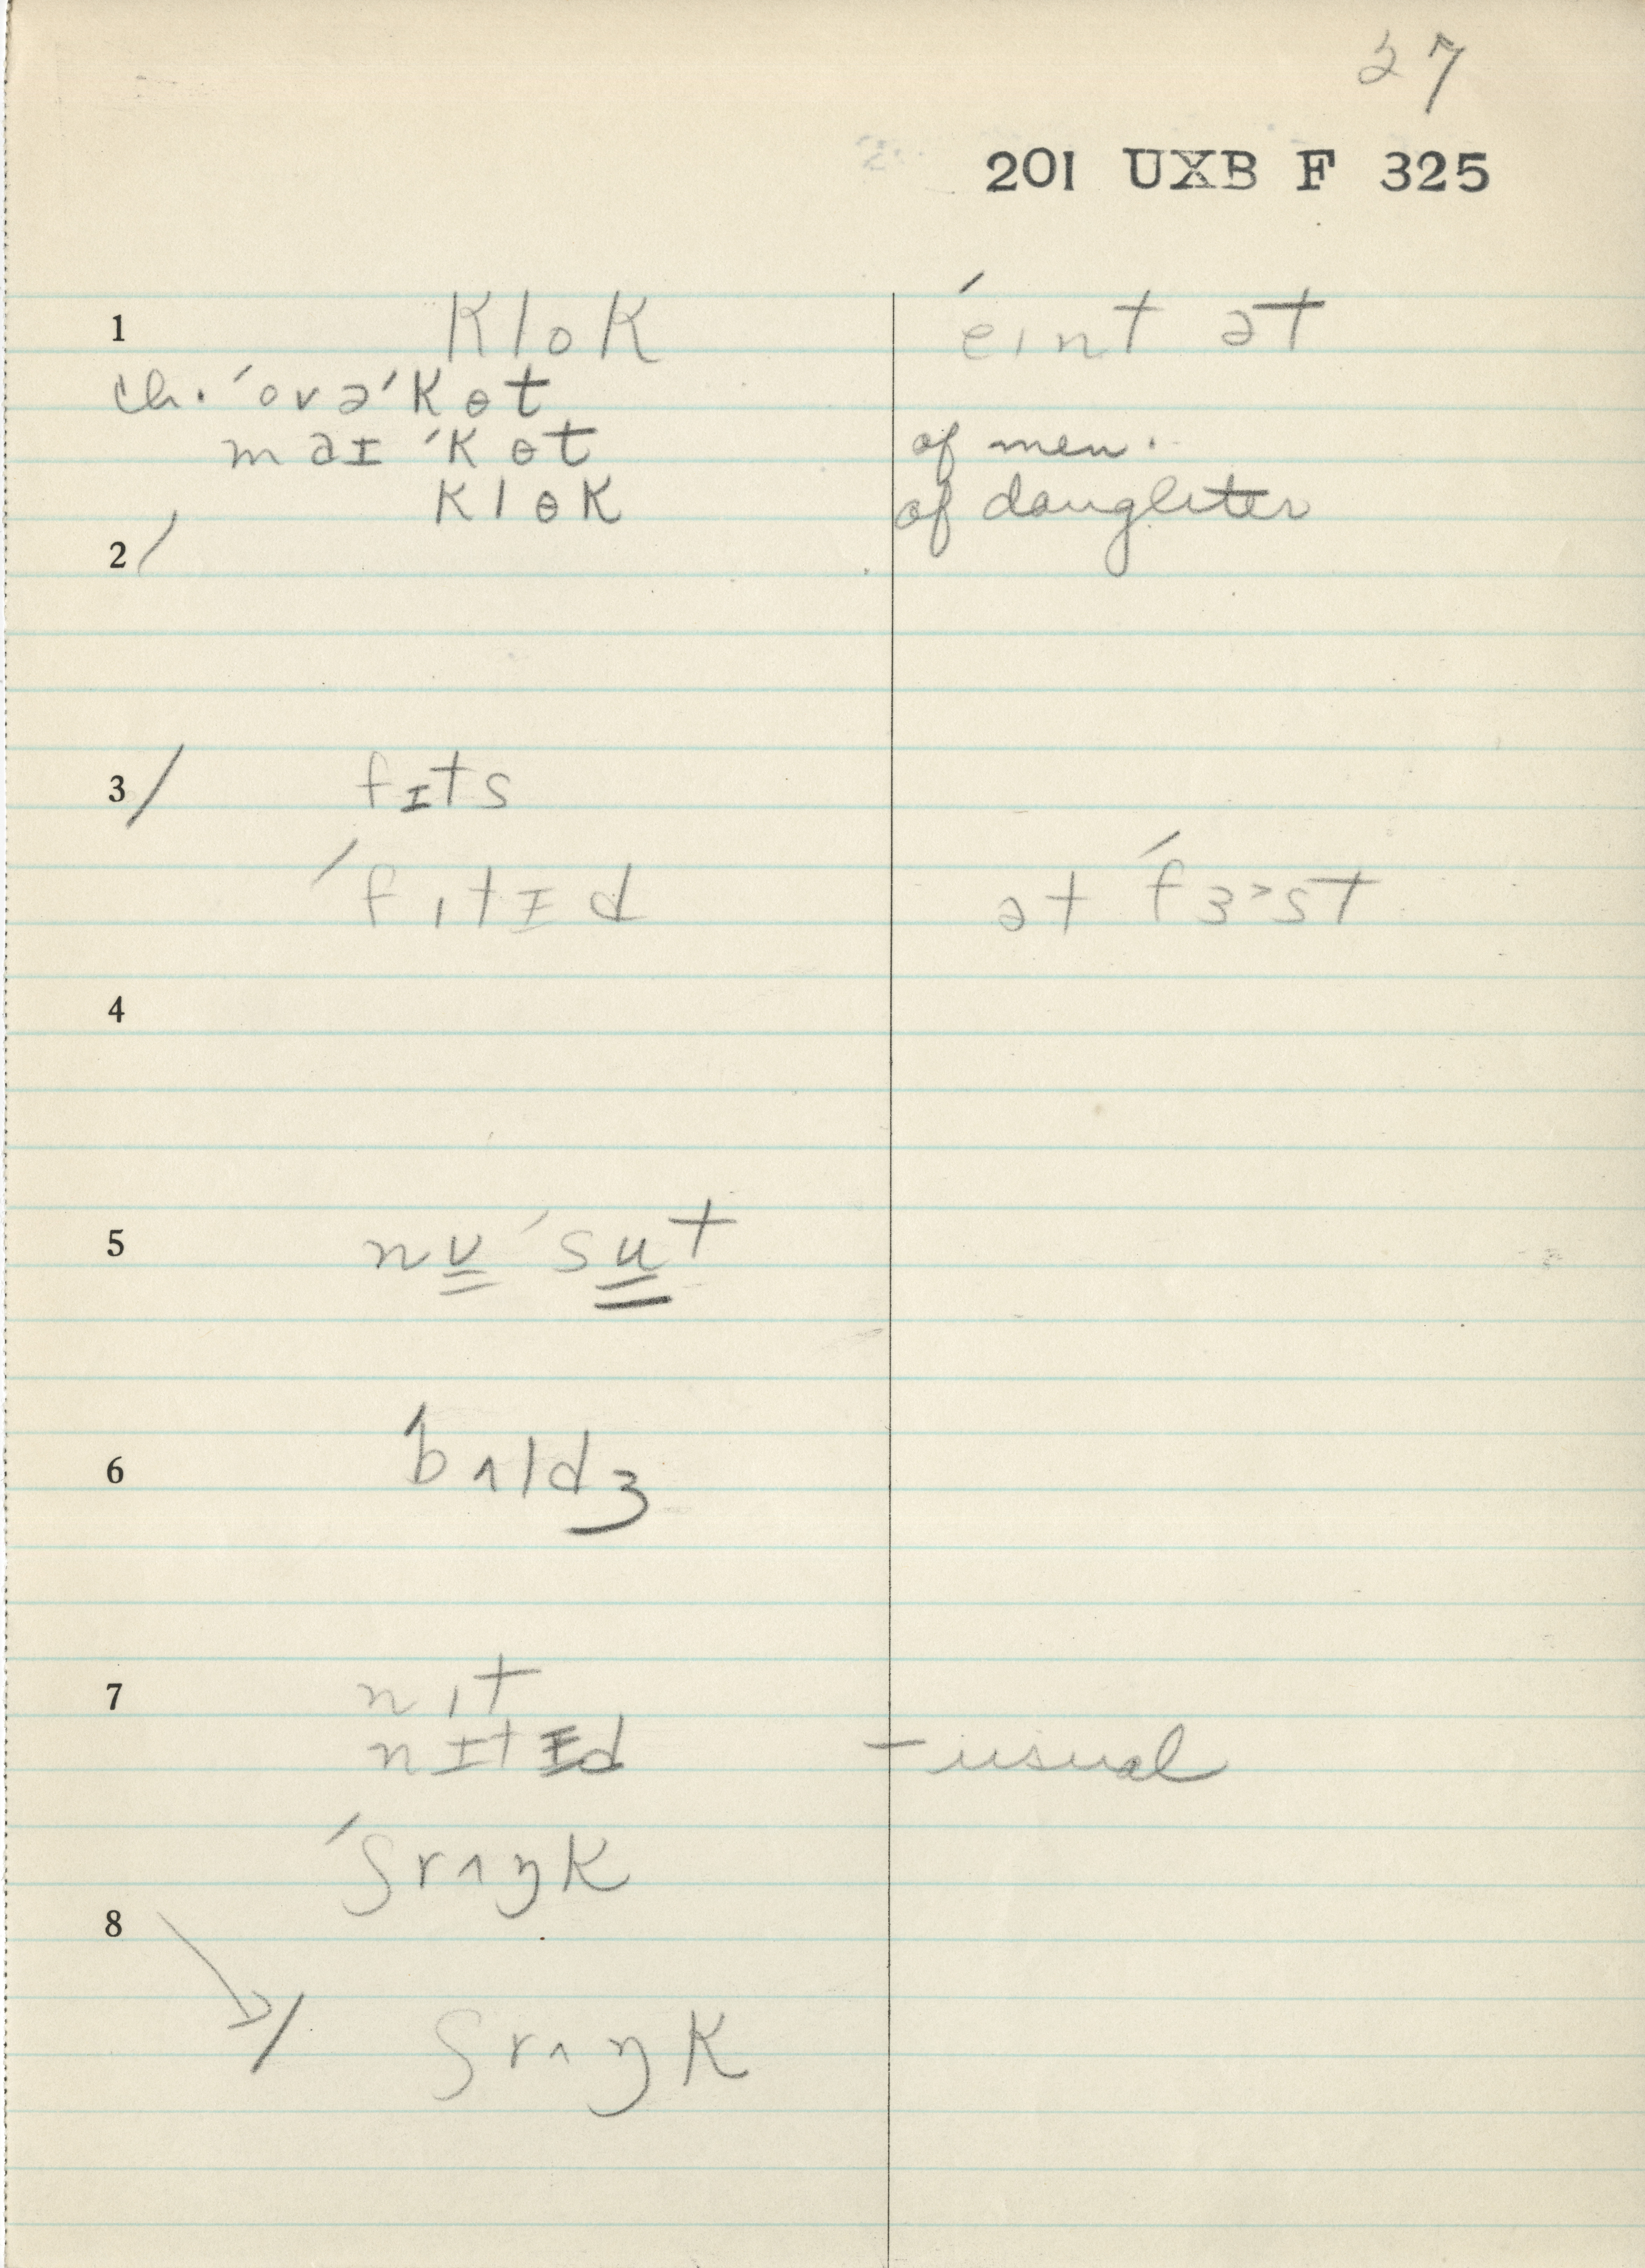 27
201 UXB F 325
1 klok ˈeint ət
ch. ˈovəˈkɵt
maɪ ˈkɵt of men.
klɵk of daughter
2/
3/ fɪts
ˈfɪtɪd ət ˈfɜ˞st
4
5 nv̳ ˈsu̳t
6 bʌldʒ
7 nɪt
nɪtɪd - usual
ˈʃrʌŋk
8
/ ʃrʌŋk